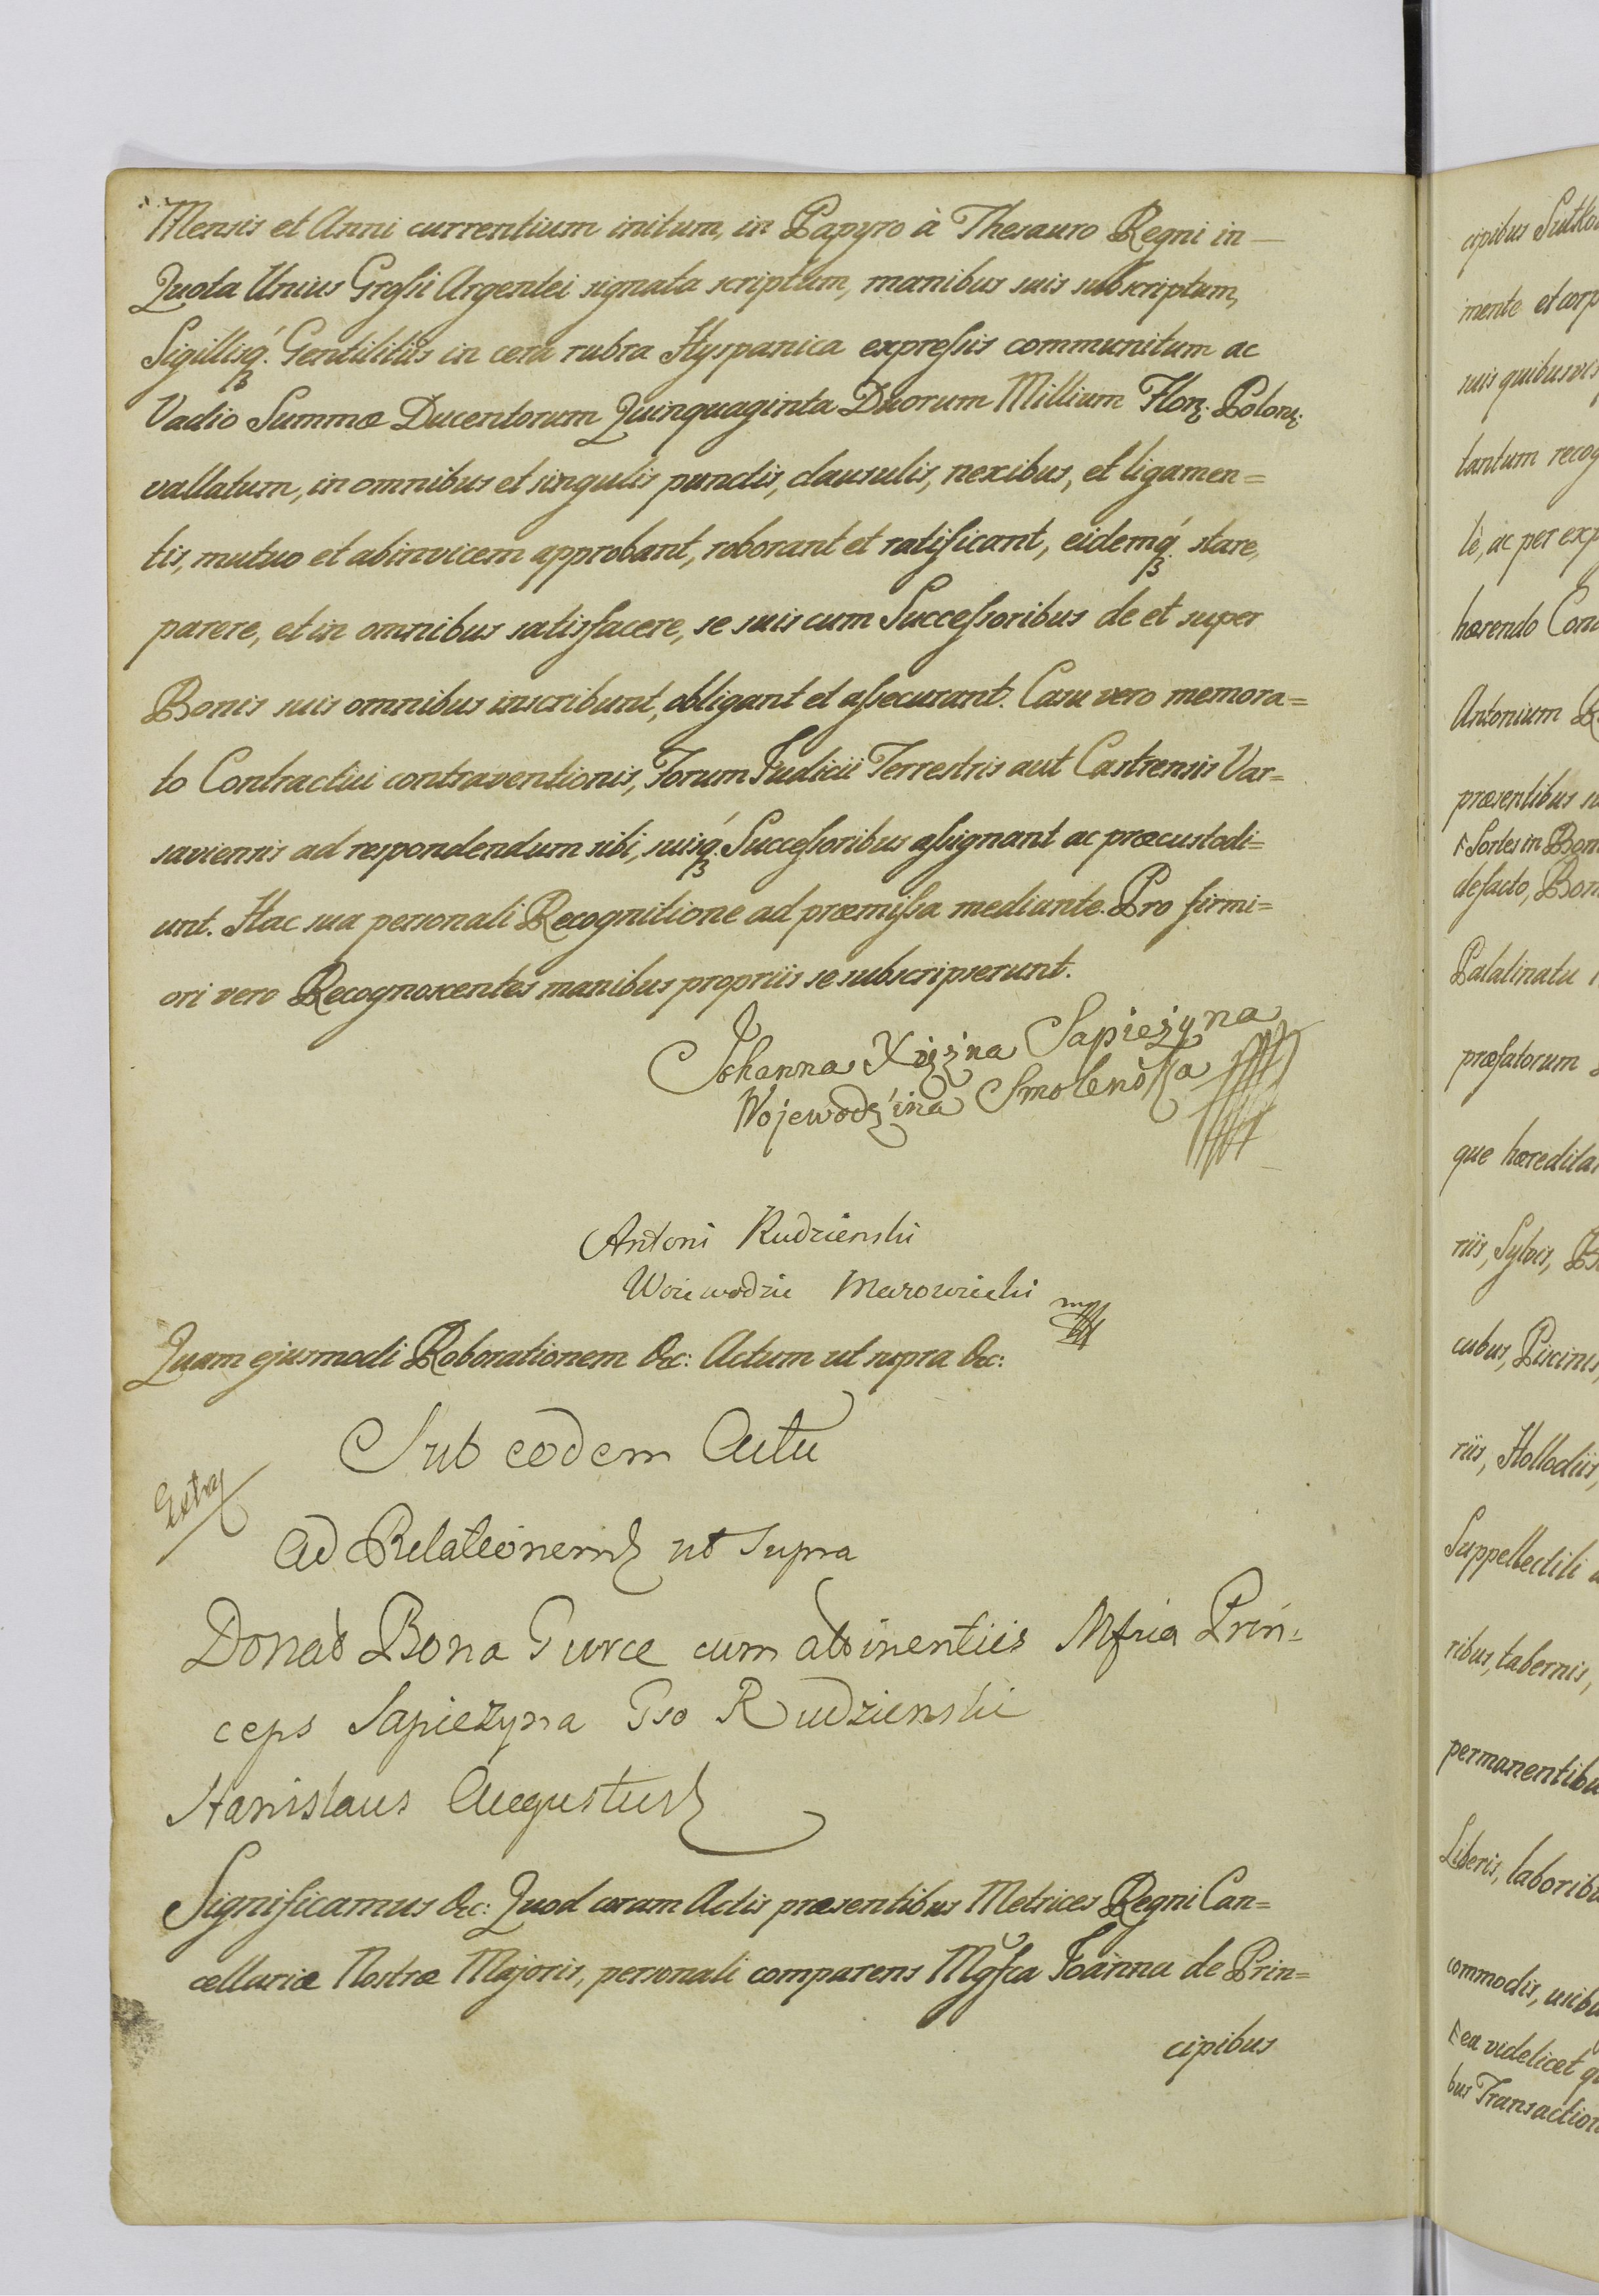 Mensis et Anni currentium initum, in Papyro à Thesauro Regni in—
Quota Unius Grossi Argentei signata scriptum, manibus suis subscriptum,
Sigillisq́ꝫ Gentilitiis in cera rubra Hyspanica expressis communitum ac
Vadio Summæ Ducentorum Quinquaginta Duorum Millium Flor: Polon:
vallatum, in omnibus et singulis punctis, clausulis, nexibus, et ligamen=
tis, mutuo et abinvicem approbant, roborant et ratificant, eidemq́ꝫ stare,
parere, et in omnibus satisfacere, se suis cum Successoribus de et super
Bonis suis omnibus inscribunt, obligant et assecurant. Casu vero memora=
to Contractui contraventionis, Forum Judicii Terrestris aut Castrensis Var=
saviensis ad respondendum sibi, suisq́ꝫ Successoribus assignant ac præcustodi=
unt. Hac sua personali Recognitione ad præmissa mediante. Pro firmi=
ori vero Recognoscentes manibus propriis se subscripserunt.
Johanna Xiężna Sapieżyna
Wojewodźina Smoleńska
Antoni Rudzienski
Woiewodzic Mazowiecki mp
Quam ejusmodi Roborationem &c: Actum ut supra &c:
Sub eodem Actu
Extra
Ad Relationem ut supra
Donat Bona Gurce cum attinentiis Mfica Prin=
ceps Sapiezyna Gso Rudzienski
Stanislaus Augustus
Significamus &c: Quod coram Actis præsentibus Metrices Regni Can=
cellariæ Nostræ Majoris, personali comparens Mgfca Joanna de Prin=
cipibus
cipibus
mente et corp
suis quibusvis
tantum recog
le, ac per exp
hærendo Con
Antonium
præsentibus
Sortes in Bon
defacto, Bon
Palatinatu
præfatorum
que hæredita
riis, Sylvis,
cubus, Piscinis,
riis, Hollodiis,
Suppellectili
ribus, tabernis,
permanentibu
Liberis, laboribu
commodis, usibu
ea videlicet
bus Transaction